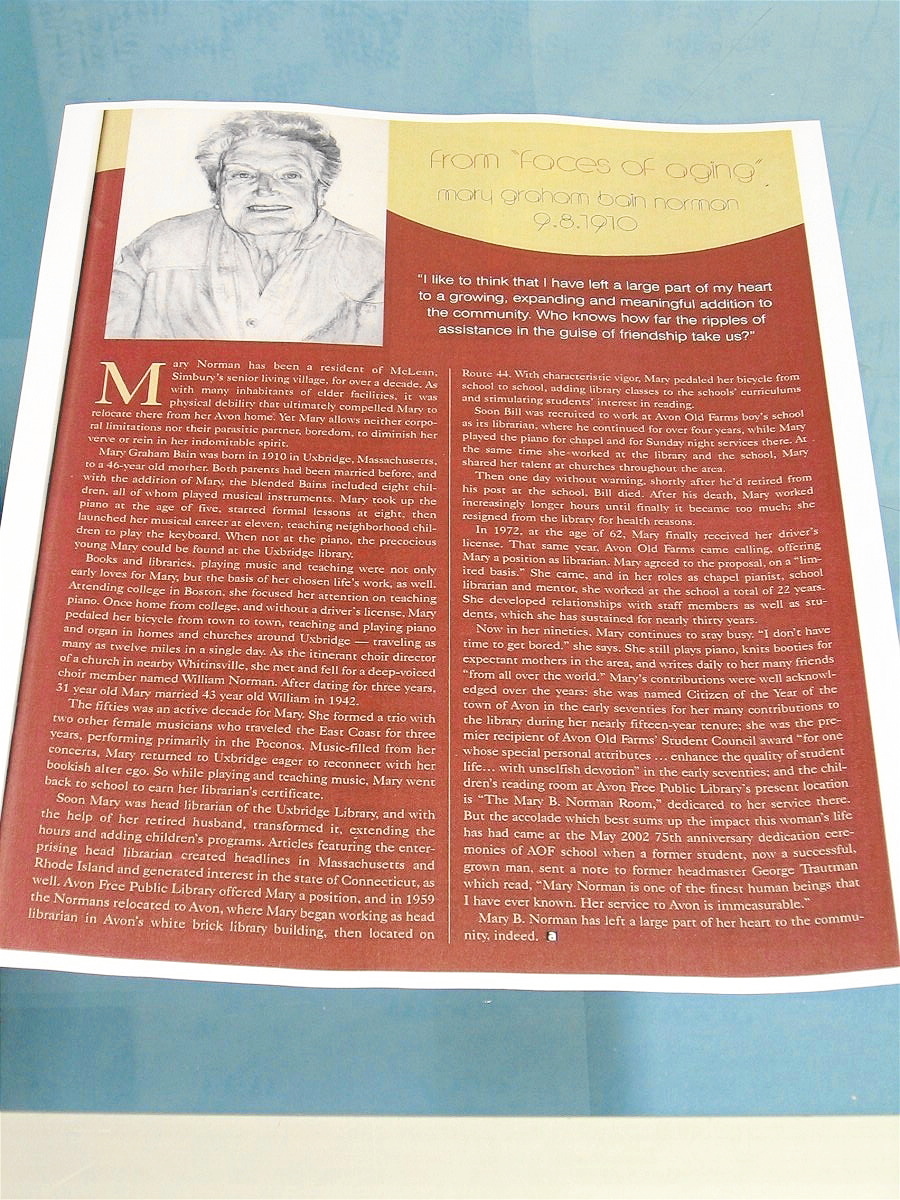 from "faces of aging"
mary graham bain norman
9.8.1910
"I like to think that I have left a large part of my heart
to a growing, expanding and meaningful addition to
the community. Who knows how far the ripples of
assistance in the guise of friendship take us?"
Mary Norman has been a resident of McLean,
Simbury's senior living village, for over a decade. As
with many inhabitants of elder facilities, it was
physical debility that ultimately compelled Mary to
relocate there from her Avon home. Yet Mary allows neither corpo-
ral limitations nor their parasitic partner, boredom, to diminish her
verve or rein in her indomitable spirit.
Mary Graham Bain was born in 1910 in Uxbridge, Massachusetts,
to a 46-year old mother. Both parents had been married before, and
with the addition of Mary, the blended Bains included eight chil-
dren, all of whom played musical instruments. Mary took up the
piano at the age of five, started formal lessons at eight, then
launched her musical career at eleven, teaching neighborhood chil-
dren to play the keyboard. When not at the piano, the precocious
young Mary could be found at the Uxbridge library.
Books and libraries, playing music and teaching were not only
early loves for Mary, but the basis of her chosen life's work, as well.
Attending college in Boston, she focused her attention on teaching
piano. Once home from college, and without a driver's license, Mary
pedaled her bicycle from town to town, teaching and playing piano
and organ in homes and churches around Uxbridge — traveling as
many as twelve miles in a single day. As the itinerant choir director
of a church in nearby Whitinsville, she met and fell for a deep-voiced
choir member named William Norman. After dating for three years,
31 year old Mary married 43 year old William in 1942.
The fifties was an active decade for Mary. She formed a trio with
two other female musicians who traveled the East Coast for three
years, performing primarily in the Poconos. Music-filled from her
concerts, Mary returned to Uxbridge eager to reconnect with her
bookish alter ego. So while playing and teaching music, Mary went
back to school to earn her librarian's certificate.
Soon Mary was head librarian of the Uxbridge Library, and with
the help of her retired husband, transformed it, extending the
hours and adding children's programs. Articles featuring the enter-
prising head librarian created headlines in Massachusetts and
Rhode Island and generated interest in the state of Connecticut, as
well. Avon Free Public Library offered Mary a position, and in 1959
the Normans relocated to Avon, where Mary began working as head
librarian in Avon's white brick library building, then located on
Route 44. With characteristic vigor, Mary pedaled her bicycle from
school to school, adding library classes to the schools' curriculums
and stimulating students' interest in reading.
Soon Bill was recruited to work at Avon Old Farms boy's school
as its librarian, where he continued for over four years, while Mary
played the piano for chapel and for Sunday night services there. At
the same time she worked at the library and the school, Mary
shared her talent at churches throughout the area.
Then one day without warning, shortly after he'd retired from
his post at the school, Bill died. After his death, Mary worked
increasingly longer hours until finally it became too much; she
resigned from the library for health reasons.
In 1972, at the age of 62, Mary finally received her driver's
license. That same year, Avon Old Farms came calling, offering
Mary a position as librarian. Mary agreed to the proposal, on a "lim-
ited basis." She came, and in her roles as chapel pianist, school
librarian and mentor, she worked at the school a total of 22 years.
She developed relationships with staff members as well as stu-
dents, which she has sustained for nearly thirty years.
Now in her nineties, Mary continues to stay busy. "I don't have
time to get bored." she says. She still plays piano, knits booties for
expectant mothers in the area, and writes daily to her many friends
"from all over the world." Mary's contributions were well acknowl-
edged over the years: she was named Citizen of the Year of the
town of Avon in the early seventies for her many contributions to
the library during her nearly fifteen-year tenure; she was the pre-
mier recipient of Avon Old Farms' Student Council award "for one
whose special personal attributes ... enhance the quality of student
life... with unselfish devotion" in the early seventies; and the chil-
dren's reading room at Avon Free Public Library's present location
is "The Mary B. Norman Room," dedicated to her service there.
But the accolade which best sums up the impact this woman's life
has had came at the May 2002 75th anniversary dedication cere-
monies of AOF school when a former student, now a successful,
grown man, sent a note to former headmaster George Trautman
which read, "Mary Norman is one of the finest human beings that
I have ever known. Her service to Avon is immeasurable."
Mary B. Norman has left a large part of her heart to the commu-
nity, indeed. a